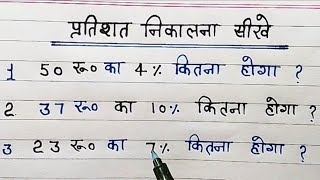 प्रतिशत निकालना सीखे
1 50 रू० का 4% कितना होगा ?
2. 37 रू० का 10% कितना होगा ?
3 23 रू० का 7% कितना होगा ?